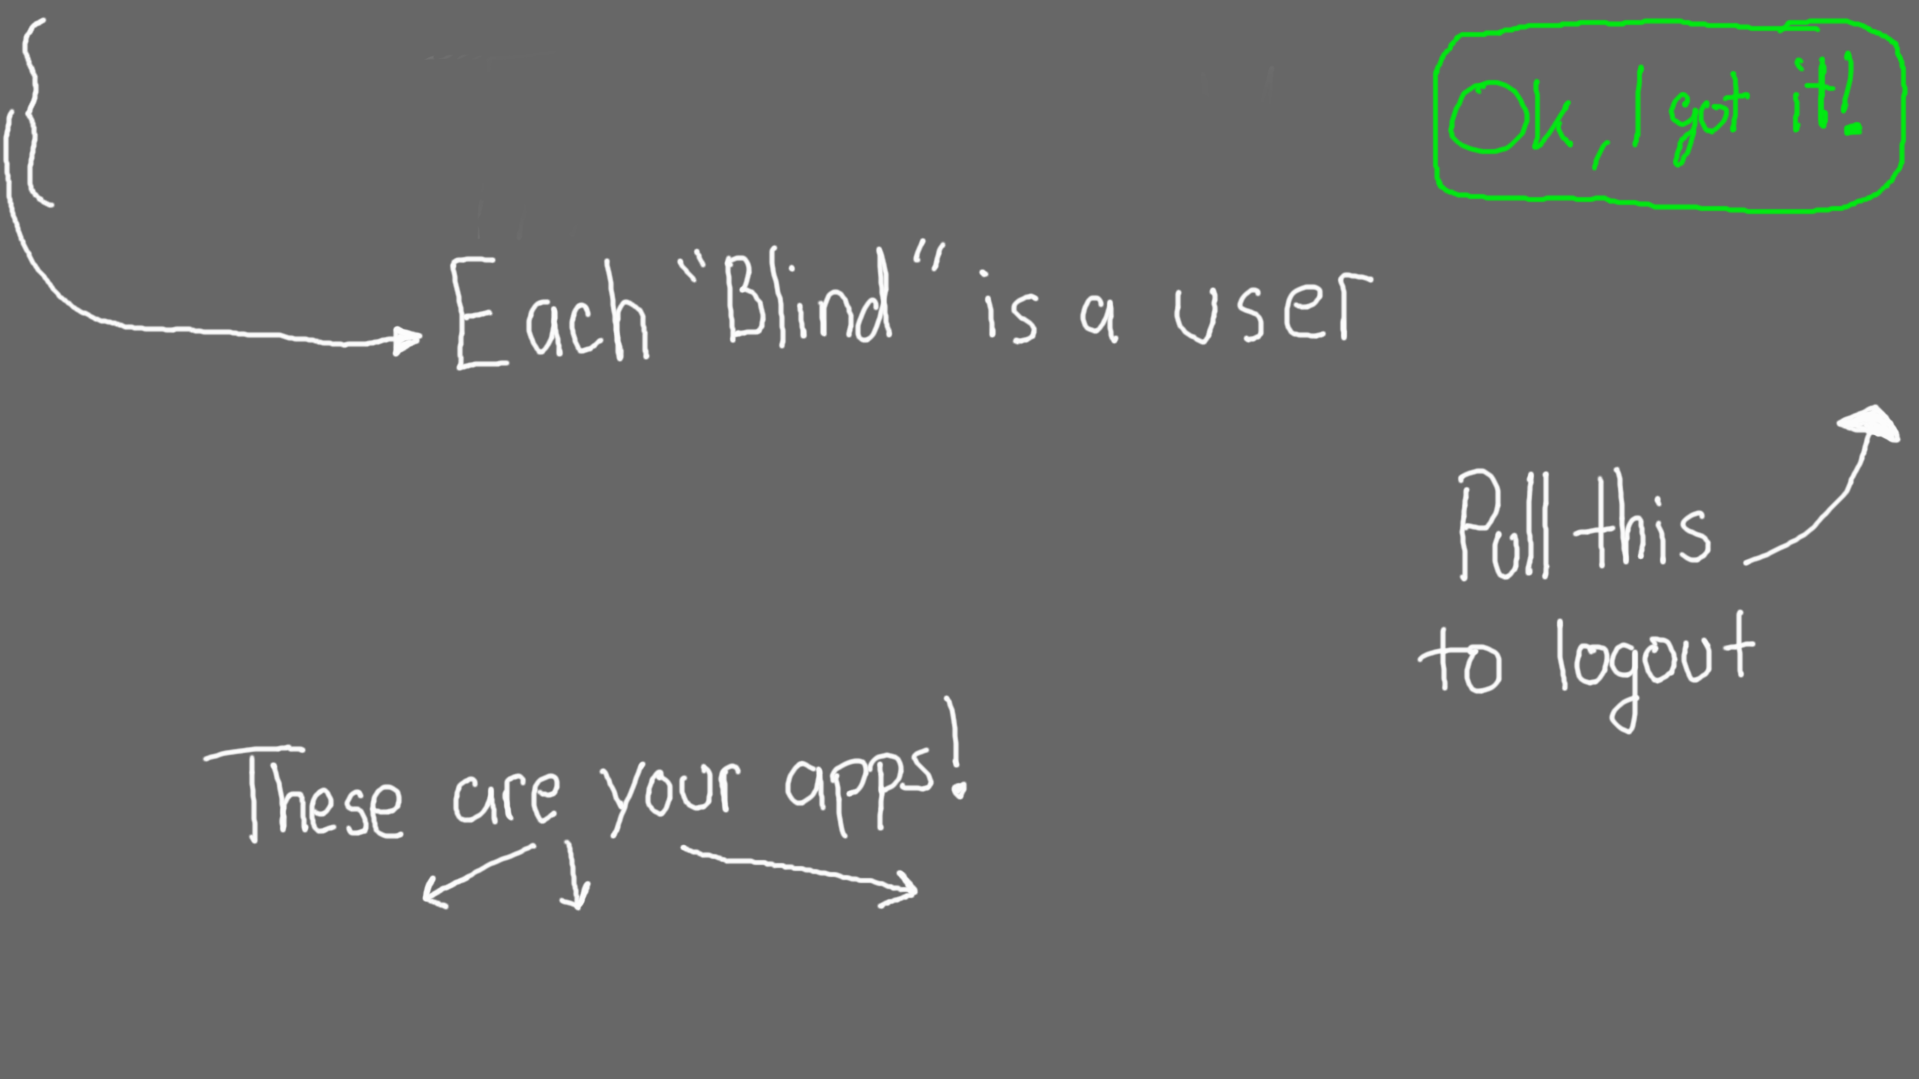 Ok, I got it!
Each "Blind" is a user
Pull this
to logout
These are your apps!